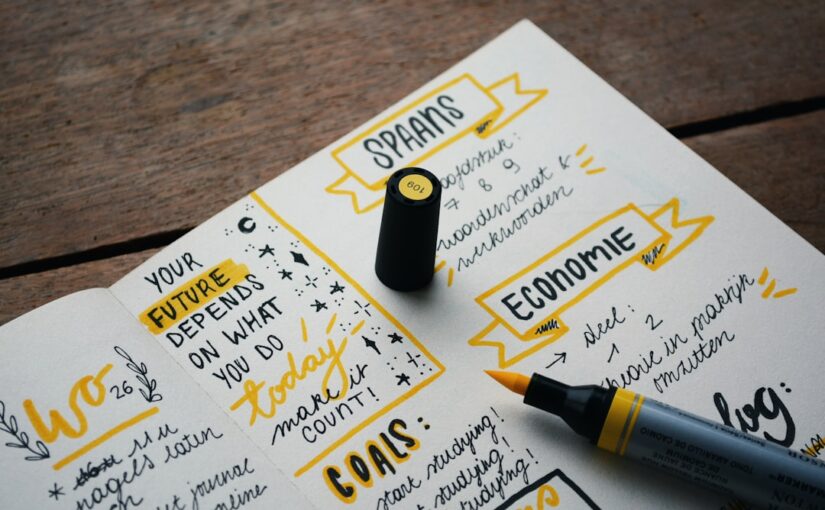 Wo 26
11u
nagels laten
journal
online
YOUR
FUTURE
DEPENDS
ON WHAT
YOU DO
today
make it
COUNT!
GOALS:
start studying!
start studying!
studying!
SPAANS
hoofdstuk:
7 8 9
woordenschat &
werkwoorden
ECONOMIE
→ deel:
1 2
theorie in praktijk
omzetten
109